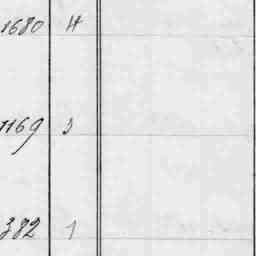 1680 4
1169 3
382 1